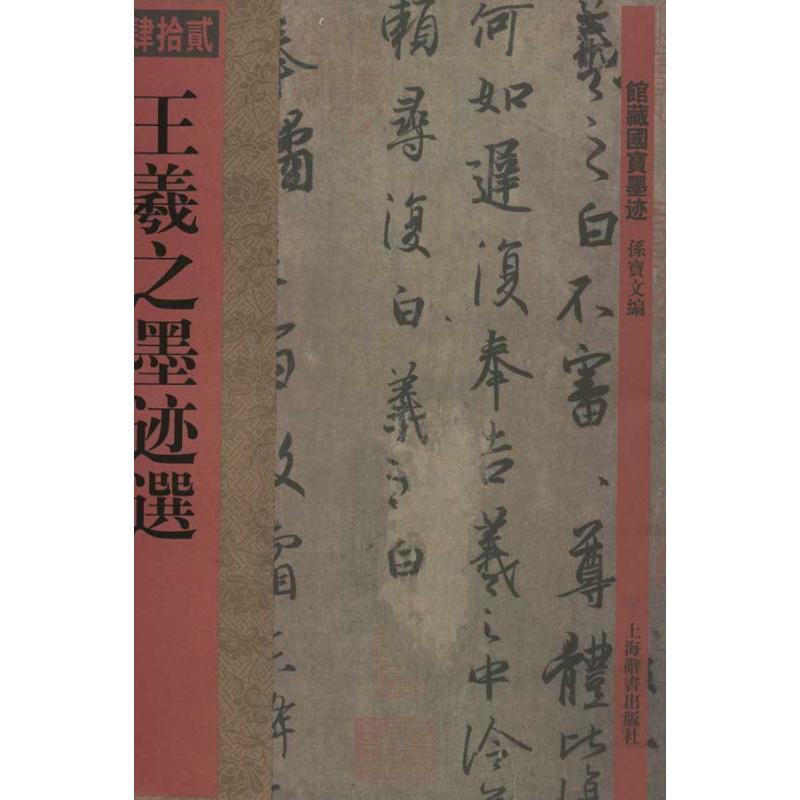 館藏國寶墨迹
孫寶文編
上海辭書出版社
羲之白不審尊體比復
何如遲復奉告羲之中冷無
賴尋復白羲之白
奉橘三百枚霜未降
肆拾貳
王羲之墨迹選